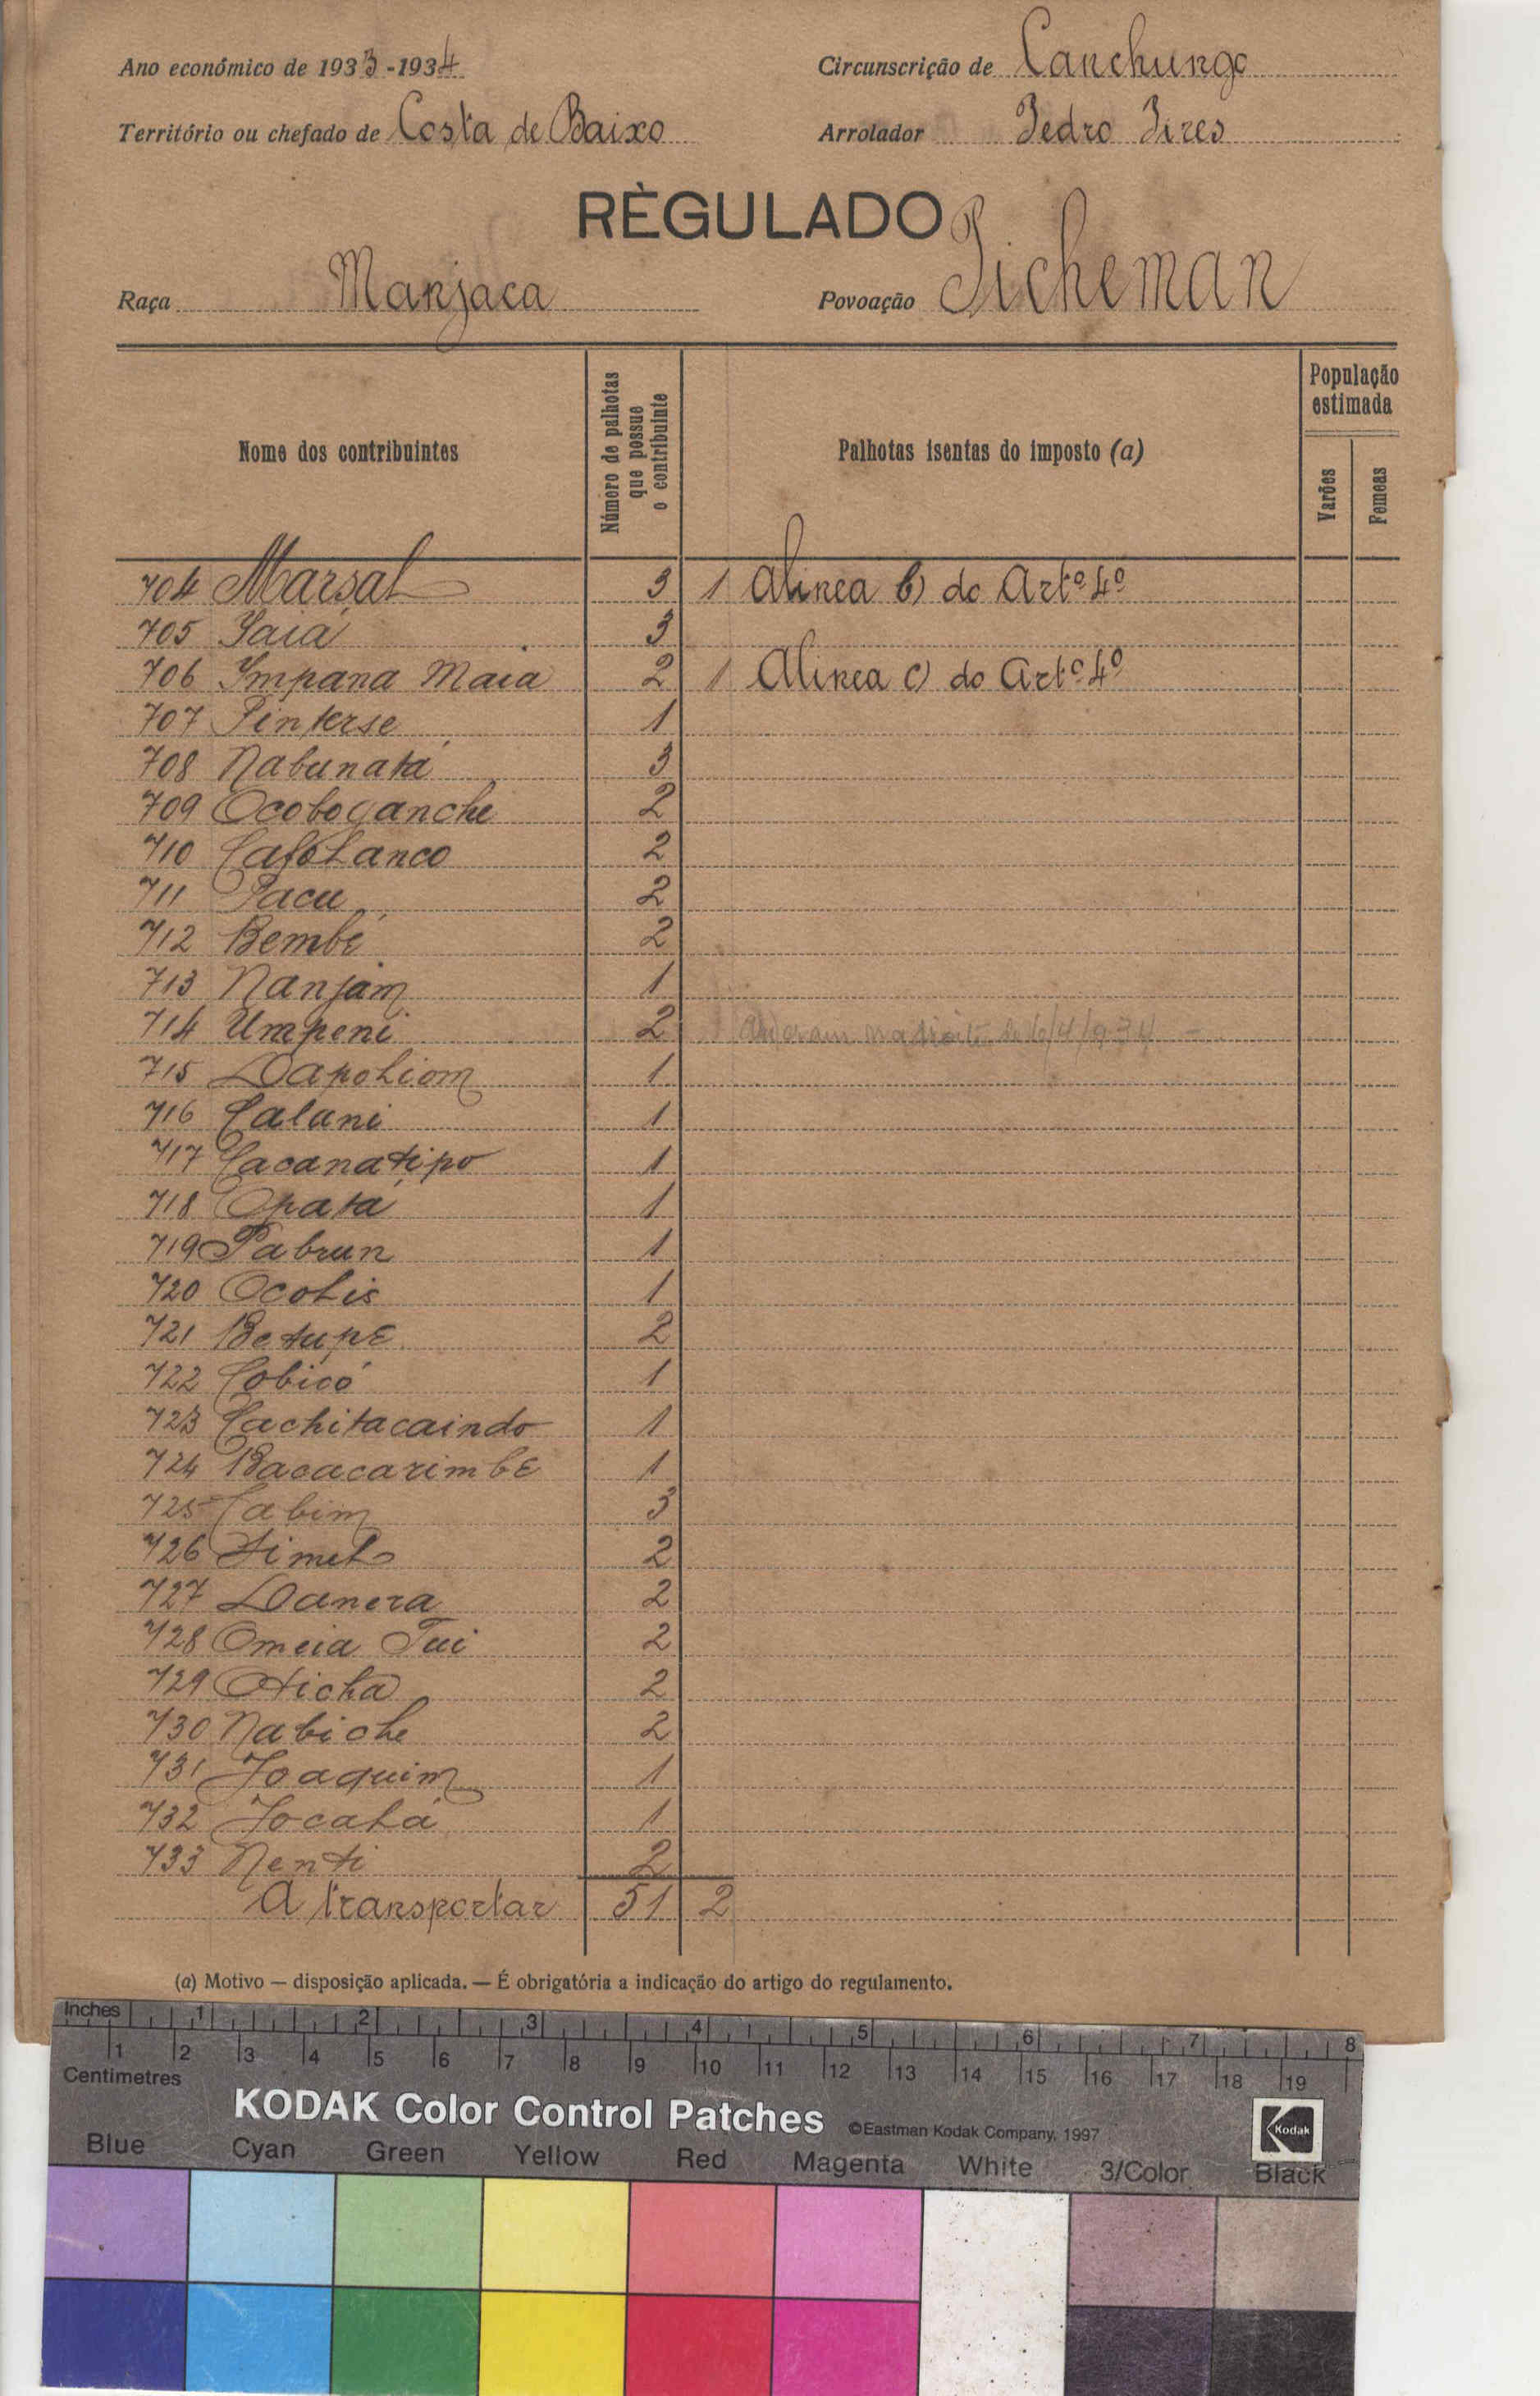 Ano económico de 1933-1934 Circunscrição de Canchungo
Território ou chefado de Costa de Baixo Arrolador Pedro Pires
RÈGULADO
Raça Manjaca Povoação Picheman
Nome dos contribuintes
Número de palhotas que possue o contribuinte
Palhotas isentas do imposto (a)
População estimada
Varões
Femeas
704 Marsal 3 1 Alinea b) do Artº 4º
705 Saiá 3
706 Impana Maia 2 1 Alinea c) do Artº 4º
707 Pinterse 1
708 Nabunatá 3
709 Ocoboganche 2
710 Cafolanco 2
711 Pacu 2
712 Bembé 2
713 Nanjam 1
714 Umpeni 2
715 Dapoliom 1
716 Calani 1
717 Cacanatipo 1
718 Opatá 1
719 Pabrun 1
720 Ocolis 1
721 Betupe 2
722 Cobicó 1
723 Cachitacaindo 1
724 Bacacarimbe 1
725 Cabim 3
726 Timel 2
727 Danera 2
728 Omeia Tui 2
729 Oticha 2
730 Nabiche 2
731 Joaquim 1
732 Jocalá 1
733 Nenti 2
A transportar 51 2
(a) Motivo — disposição aplicada. — É obrigatória a indicação do artigo do regulamento.
Inches 1 2 3 4 5 6 7 8
1 2 3 4 5 6 7 8 9 10 11 12 13 14 15 16 17 18 19
Centimetres
KODAK Color Control Patches ©Eastman Kodak Company, 1997 Kodak
Blue Cyan Green Yellow Red Magenta White 3/Color Black